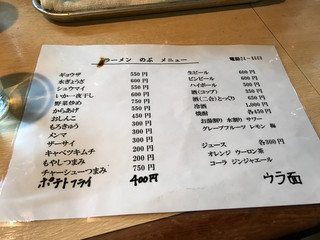 ラーメン のぶ メニュー
ギョウザ 550円
水ぎょうざ 600円
シュウマイ 350円
いか一夜干し 600円
野菜炒め 750円
からあげ 550円
おしんこ 450円
もろきゅう 300円
メンマ 300円
ザーサイ 300円
キャベツキムチ 200円
もやしつまみ 200円
チャーシューつまみ 750円
ポテトフライ 400円
生ビール 600円
ビンビール 600円
ハイボール 500円
酒(コップ) 350円
酒(二合)とっくり 450円
冷酒 1,000円
焼酎 各450円
お湯割り 水割り サワー
グレープフルーツ レモン 梅
ジュース 各300円
オレンジ ウーロン茶
コーラ ジンジャエール
ウラ面